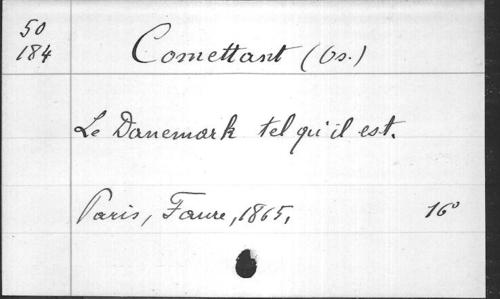 50
184
Comettant (Os.)
Le Danemark tel qu'il est.
Paris, Faure, 1865, 16°